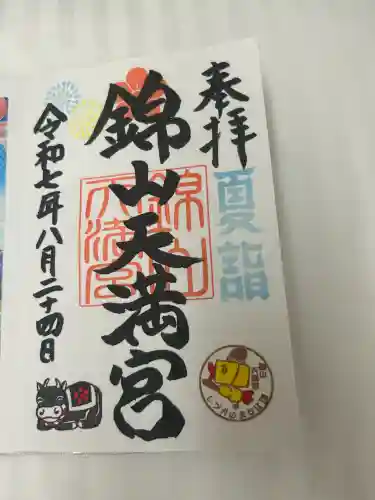 奉拝
夏詣
錦山天満宮
錦山天満宮
令和七年八月二十四日